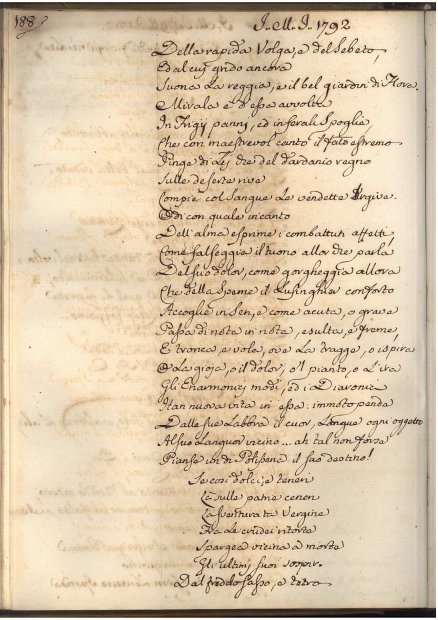 188
I. M. I. 1792
Della rapida Volga, e del Sebeto,
Ed al cui grido ancora
Suona la reggia, e il bel giardin di Flora.
Mirala e d'essa avvolta
In Frigj panni, ed in ferali Spoglie
Che con maestrevol canto il fato estremo
Pinge di lei che del dardanio regno
Sulle deserte rive
Compiè col Sangue le vendette Argive.
Odi con quale incanto
Dell'alma esprime i combattuti affetti,
Come falseggia il tuono allor che parla
Del suo dolor, come gorgheggia allora
Che della Speme il Lusinghier conforto
Accoglie in Sen, e come acuta, o grave
Passa di nota in nota, esulta, e freme,
E tronca, e vola, ove la tragge, o ispira
O la gioja, o il dolor, o 'l pianto, o l'ira
Gli Enarmonici modi, ed i Diatonici
Han nuova vita in essa: immoto pende
Dalle sue Labbra il cuor, Langue ogni oggetto
Al suo Languor vicino... ah tal non forse
Pianse un dì Polissena il suo destino!
Se così dolci, e teneri
Là sulle patrie ceneri
La sventurata Vergine
Fra le crudei ritorte
Spargea vicina a morte
Gli ultimj suoi sospir.
Dal freddo sasso, e tetro